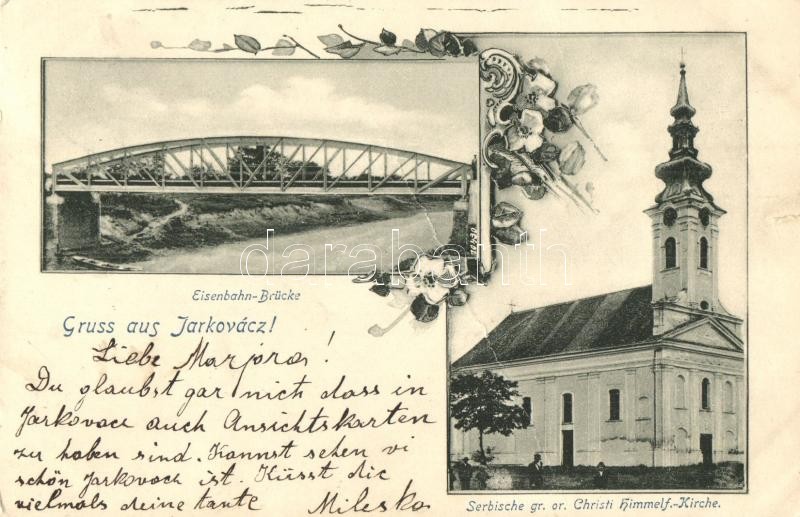 Eisenbahn-Brücke
Gruss aus Jarkovácz!
Liebe Marjora!
Du glaubst gar nich dass in
Jarkovacz auch Ansichtskarten
zu haben sind. Kannst sehen vi
schön Jarkovach ist. Küsst dic
vielmals deine tante Mileska
Serbische gr. or. Christi Himmelf.-Kirche.
darabanth